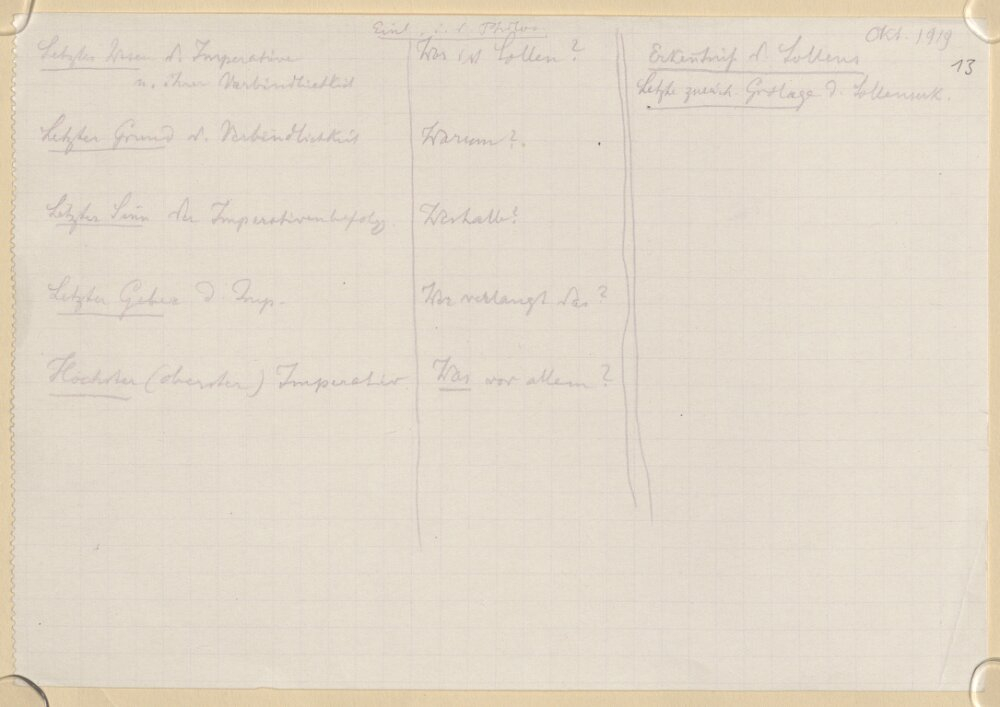 Einl. i. d. Philos
Okt. 1919
13
Letztes Wesen d. Imperative
u. ihrer Verbindlichkeit
Was ist Sollen?
Erkentnis d. Sollens
Letzte Grdlage d. Sollenserk.
Letzter Grund d. Verbindlichkeit
Warum?
Letzter Sinn der Imperativenbefolg.
Weshalb?
Letzter Geber d. Imp.
Wer verlangt das?
Höchster (oberster) Imperativ
Was vor allem?